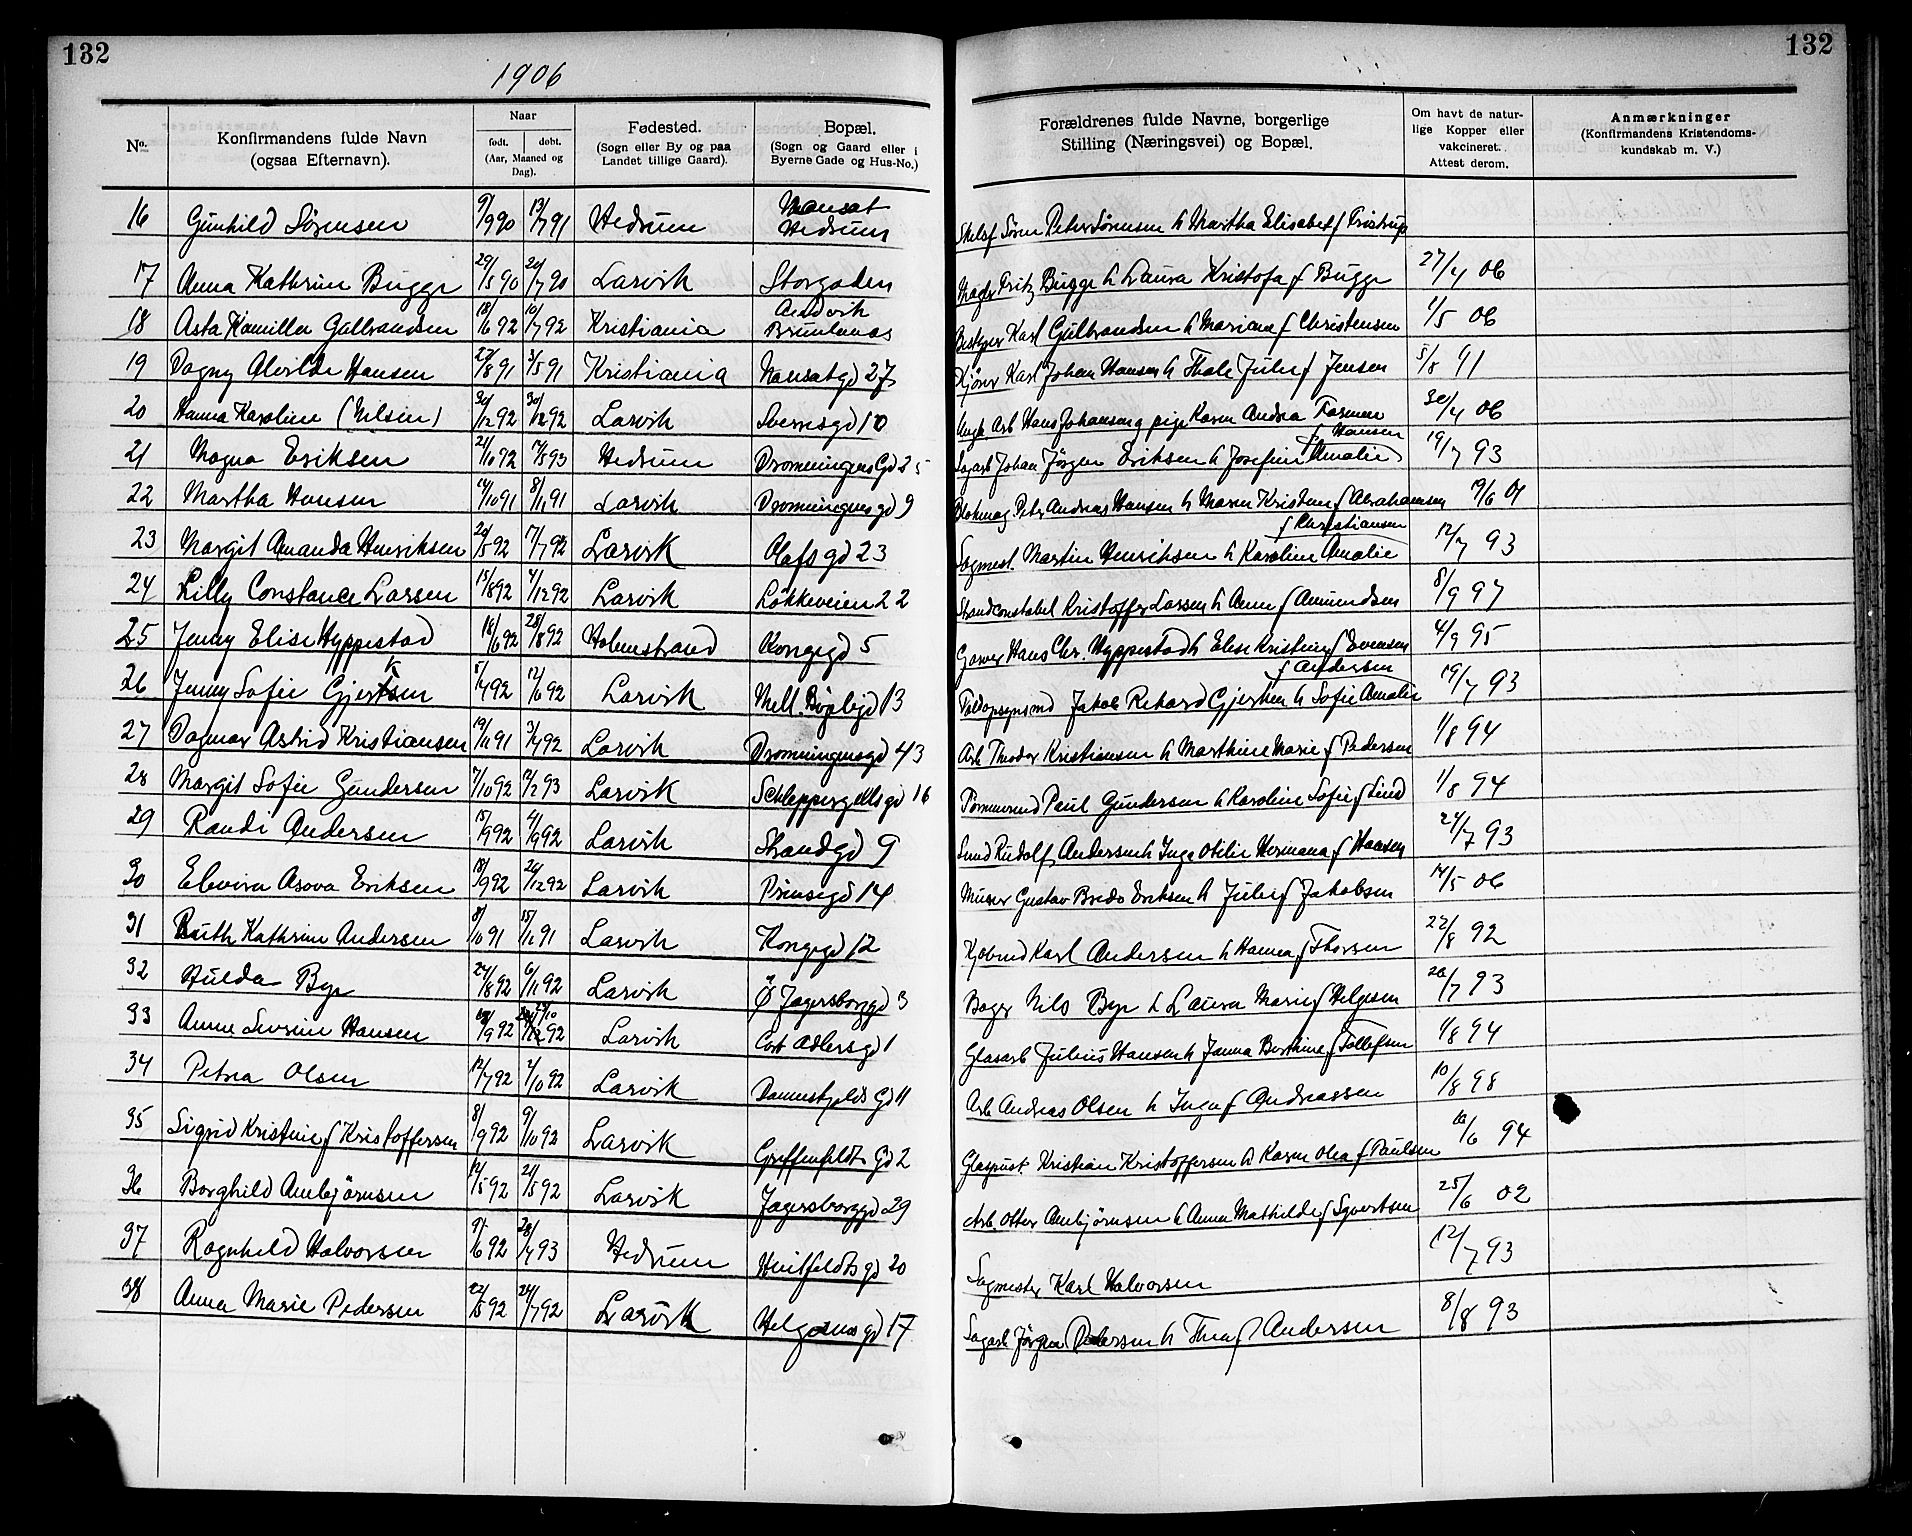 132
132
1906
No.
Konfirmandens fulde Navn (ogsaa Efternavn).
Naar
født. døbt.
(Aar, Maaned og Dag).
Fødested. (Sogn eller By og paa Landet tillige Gaard).
Bopæl. (Sogn og Gaard eller i Byerne Gade og Hus-No.)
Forældrenes fulde Navne, borgerlige Stilling (Næringsvei) og Bopæl.
Om havt de naturlige Kopper eller vakcineret. Attest derom.
Anmærkninger (Konfirmandens Kristendomskundskab m. V.)
16 Gunhild Sørensen 9/9 90 13/7 91 Hedrum Nansat Hedrum Søren Peter Sørensen h Martha Elisabet f Tristrup
17 Anna Kathrine Bugge 29/5 90 20/7 90 Larvik Storgaden Fritz Bugge h Laura Kristofa f Bugge 27/4 06
18 Asta Kamilla Gulbrandsen 18/6 92 10/7 92 Kristiania Brunlanæs Bestyrer Karl Gulbrandsen h Mariane f Christensen 1/5 06
19 Dagny Alvilde Hansen 22/8 91 3/5 91 Kristiania Nansetgd 27 Kjører Karl Johan Hansen h Thale Julie f Jensen 5/8 91
20 Hanna Karoline (Nilsen) 30/12 92 30/12 92 Larvik Sverresgd 10 Ungk Arb Hans Johansen og pige Karen Andrea Formoe 30/4 06
21 Magna Eriksen 21/10 92 17/5 93 Hedrum Dronningens Gd 25 Sagarb Johan Jörgen Eriksen h Josefine Amalie f Hansen 19/7 93
22 Martha Hansen 14/10 91 8/11 91 Larvik Dronningensgd 9 Blokmag Peter Andreas Hansen h Maren Kristine f Abrahamsen 19/6 01
23 Margit Amanda Henriksen 20/5 92 17/7 92 Larvik Olafsgd 23 Sagmest. Martin Henriksen h Karoline Amalie f Christiansen 12/7 93
24 Lilly Constance Larsen 15/8 92 4/12 92 Larvik Løkkeveien 22 Strandconstabel Kristoffer Larsen h Anna f Amundsen 8/9 97
25 Jenny Elise Hyppestad 18/6 92 28/8 92 Holmestrand Kongegd 5 Garver Hans Chr. Hyppestad h Elise Kristine f Evensen 4/9 95
26 Jenny Sofie Gjertsen 5/7 92 12/6 92 Larvik Mell. Bøjlegd 13 Toldopsynsmd Jakob Rikard Gjertsen h Sofie Amalie f Andersen 19/7 93
27 Dagmar Astrid Kristiansen 19/11 91 3/7 92 Larvik Dronningensgd 43 Arb Theodor Kristiansen h Marthine Marie f Pedersen 1/8 94
28 Margit Sofie Gundersen 7/10 92 12/2 93 Larvik Schleppergrellsgd 16 Tømmermd Paul Gundersen h Karoline Sofie f Lind 1/8 94
29 Randi Andersen 15/9 92 4/9 92 Larvik Strandgd 9 Smed Rudolf Andersen h Inga Otilie Hermana f Hansen 24/7 93
30 Elevira Asora Eriksen 18/9 92 26/12 92 Larvik Prinsegd 14 Murer Gustav Bredo Eriksen h Julie f Jakobsen 14/5 06
31 Ruth Kathrine Andersen 8/10 91 15/11 91 Larvik Kongegd 12 Kjøbmd Karl Andersen h Hanna f Thorsen 22/8 92
32 Hulda Bye 24/8 92 6/11 92 Larvik Ø Jagersborggd 3 Bager Nils Bye h Laura Marie f Helgesen 20/7 93
33 Anna Severine Hansen 9/9 92 12 92 Larvik Cort Adlersgd 1 Glasarb Julius Hansen h Janna Berthine f Tollefsen 1/8 94
34 Petra Olsen 12/7 92 2/10 92 Larvik Danneskjolds Gd 11 Arb Andreas Olsen h Inga f Andreassen 10/8 98
35 Sigrid Kristine f Kristoffersen 8/9 92 9/10 92 Larvik Griffenfeldts Gd 2 Glaspust. Kristian Kristoffersen h Karen Olea f Paulsen 16/6 94
36 Borghild Anbjörnsen 14/5 92 21/5 92 Larvik Jagersborggd 29 Arb. Otter Anbjörnsen h Anna Mathilde f Syvertsen 25/6 02
37 Ragnhild Halvorsen 9/6 92 28/4 93 Hedrum Huitfeldts gd 20 Sagmester Karl Halvorsen 12/7 93
38 Anna Marie Pedersen 22/5 92 24/7 92 Larvik Helgesensgd 17 Sagarb Jörgen Pedersen h Thea f Andersen 8/8 93